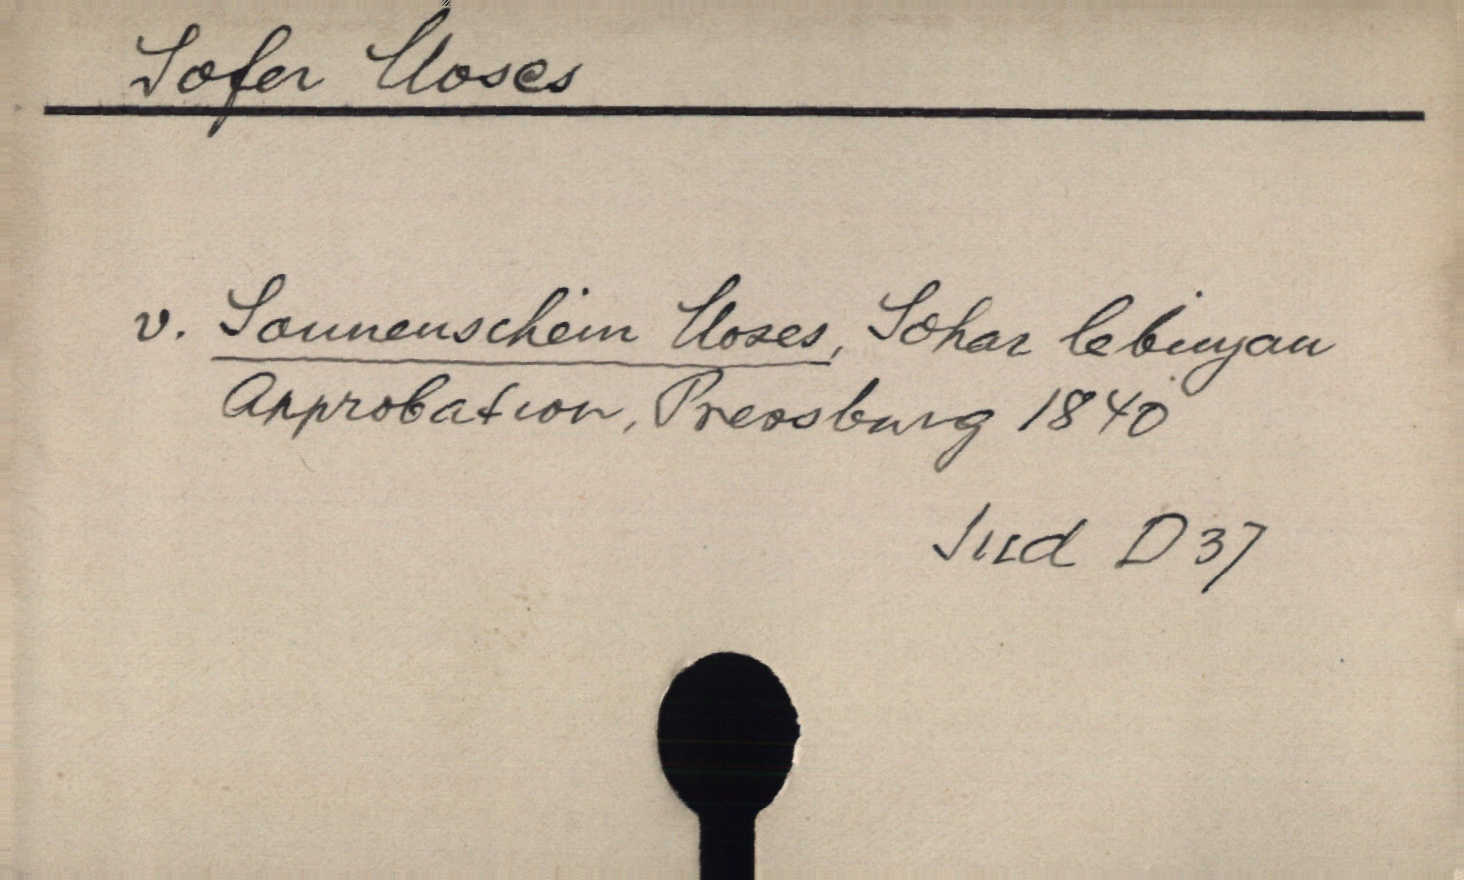 Sofer Moses
v. Sonnenschein Moses, Sohar lebinjan
Approbation, Pressburg 1840
Jud D 37